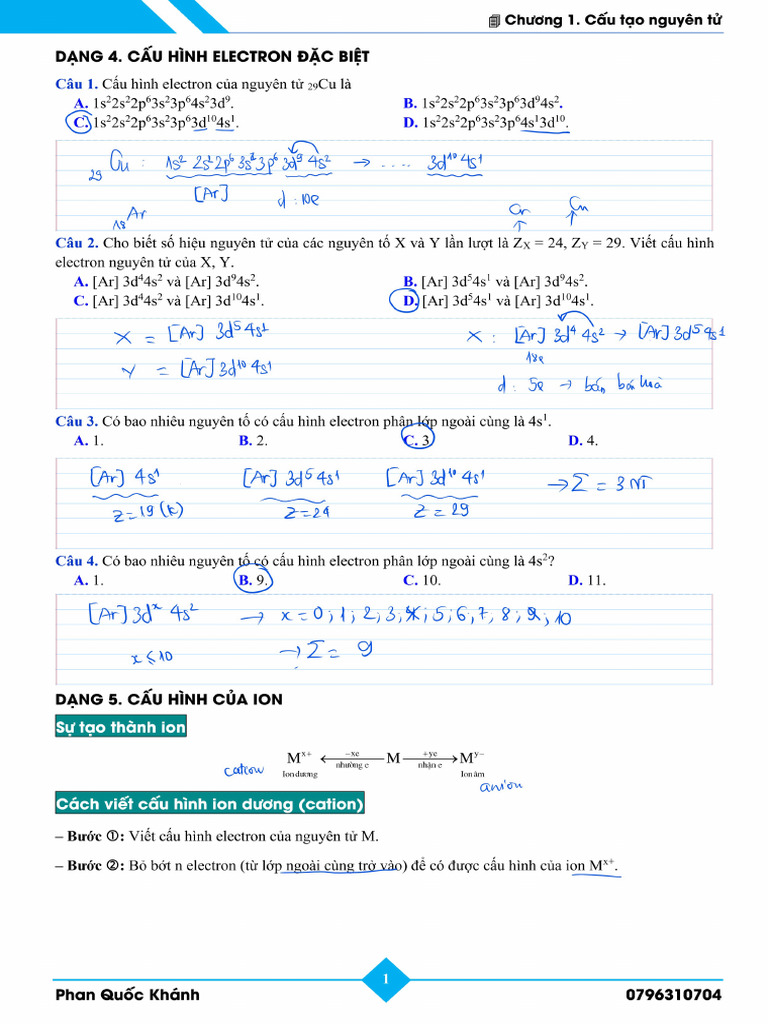 Chương 1. Cấu tạo nguyên tử
DẠNG 4. CẤU HÌNH ELECTRON ĐẶC BIỆT
Câu 1. Cấu hình electron của nguyên tử ₂₉Cu là
A. 1s²2s²2p⁶3s²3p⁶4s²3d⁹. B. 1s²2s²2p⁶3s²3p⁶3d⁹4s².
C. 1s²2s²2p⁶3s²3p⁶3d¹⁰4s¹. D. 1s²2s²2p⁶3s²3p⁶4s¹3d¹⁰.
₂₉Cu : 1s² 2s²2p⁶3s²3p⁶3d⁹4s² → .... 3d¹⁰4s¹
[Ar] d : 10e
₁₈Ar Cr ↑ Cu ↑
Câu 2. Cho biết số hiệu nguyên tử của các nguyên tố X và Y lần lượt là Z_X = 24, Z_Y = 29. Viết cấu hình
electron nguyên tử của X, Y.
A. [Ar] 3d⁴4s² và [Ar] 3d⁹4s². B. [Ar] 3d⁵4s¹ và [Ar] 3d⁹4s².
C. [Ar] 3d⁴4s² và [Ar] 3d¹⁰4s¹. D. [Ar] 3d⁵4s¹ và [Ar] 3d¹⁰4s¹.
X = [Ar] 3d⁵4s¹ X : [Ar] 3d⁴4s² → [Ar] 3d⁵4s¹
18e
Y = [Ar] 3d¹⁰4s¹ d : 5e → bán bão hoà
Câu 3. Có bao nhiêu nguyên tố có cấu hình electron phân lớp ngoài cùng là 4s¹.
A. 1. B. 2. C. 3 D. 4.
[Ar] 4s¹ [Ar] 3d⁵4s¹ [Ar] 3d¹⁰4s¹ → Σ = 3 NT
Z=19 (K) Z=24 Z=29
Câu 4. Có bao nhiêu nguyên tố có cấu hình electron phân lớp ngoài cùng là 4s²?
A. 1. B. 9. C. 10. D. 11.
[Ar] 3dˣ 4s² → x = 0 ; 1 ; 2 ; 3 ; 4 ; 5 ; 6 ; 7 ; 8 ; 9 ; 10
x ≤ 10 → Σ = 9
DẠNG 5. CẤU HÌNH CỦA ION
Sự tạo thành ion
Mˣ⁺ ← −xe M +ye → Mʸ⁻
nhường e nhận e
cation Ion dương Ion âm anion
Cách viết cấu hình ion dương (cation)
– Bước ①: Viết cấu hình electron của nguyên tử M.
– Bước ②: Bỏ bớt n electron (từ lớp ngoài cùng trở vào) để có được cấu hình của ion Mˣ⁺.
1
Phan Quốc Khánh 0796310704